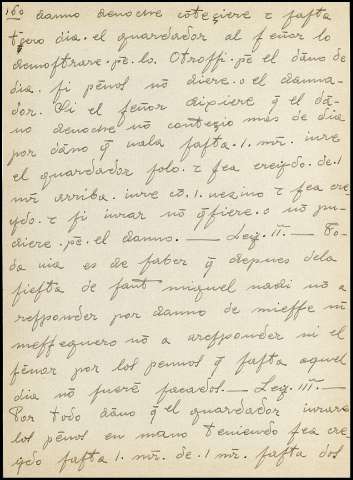 160 danno denoche cōteçiere τ fasta
tȝero dia. el guardador al señor lo
demostrare. pē. lo. Otrossi. pē el dāno de
dia. si pēnos nō diere. o el danna-
dor. Si el señor dixiere q̄ el dā-
no denoche nō conteçio mas de dia
por dāno q̄ uala fasta .1. mr̄. iure
el guardador solo. τ sea creydo. de .1
mr̄ arriba. iure cō .1. uezino τ sea cre
ydo. τ si iurar nō q̄siere. o nō pu-
diere. pē. el danno. —— Ley. II. — To-
da uia es de saber q̄ depues dela
fiesta de sant miguel nadi nō a
responder por danno de miesse nī
messeguero nō a aresponder ni el
señor por los pennos q̄ fasta aquel
dia nō fuerē sacados. — Ley. III. —
Por todo dāno q̄ el guardador iurare
los pēnos en mano teniendo sea cre
ydo fasta 1. mr̄. de .1. mr̄. fasta dos